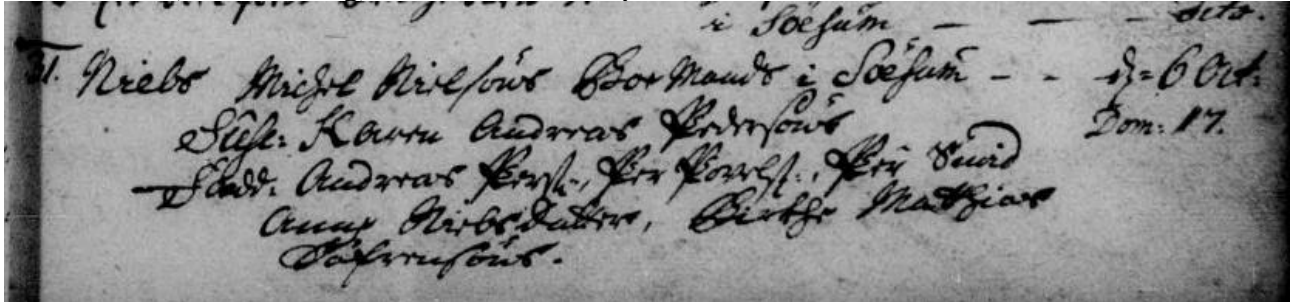 i Söesum — — — dito.
31. Niels Michel Nielsöns Boe Mands i Söesum - - d: 6 Oct:
Susc: Karen Andreas Pedersöns Dom: 17.
Fadd: Andreas Pers:, Per Povels:, Per Smid
Anne Nielsdatter, Birthe Mathias
Söfrensöns.